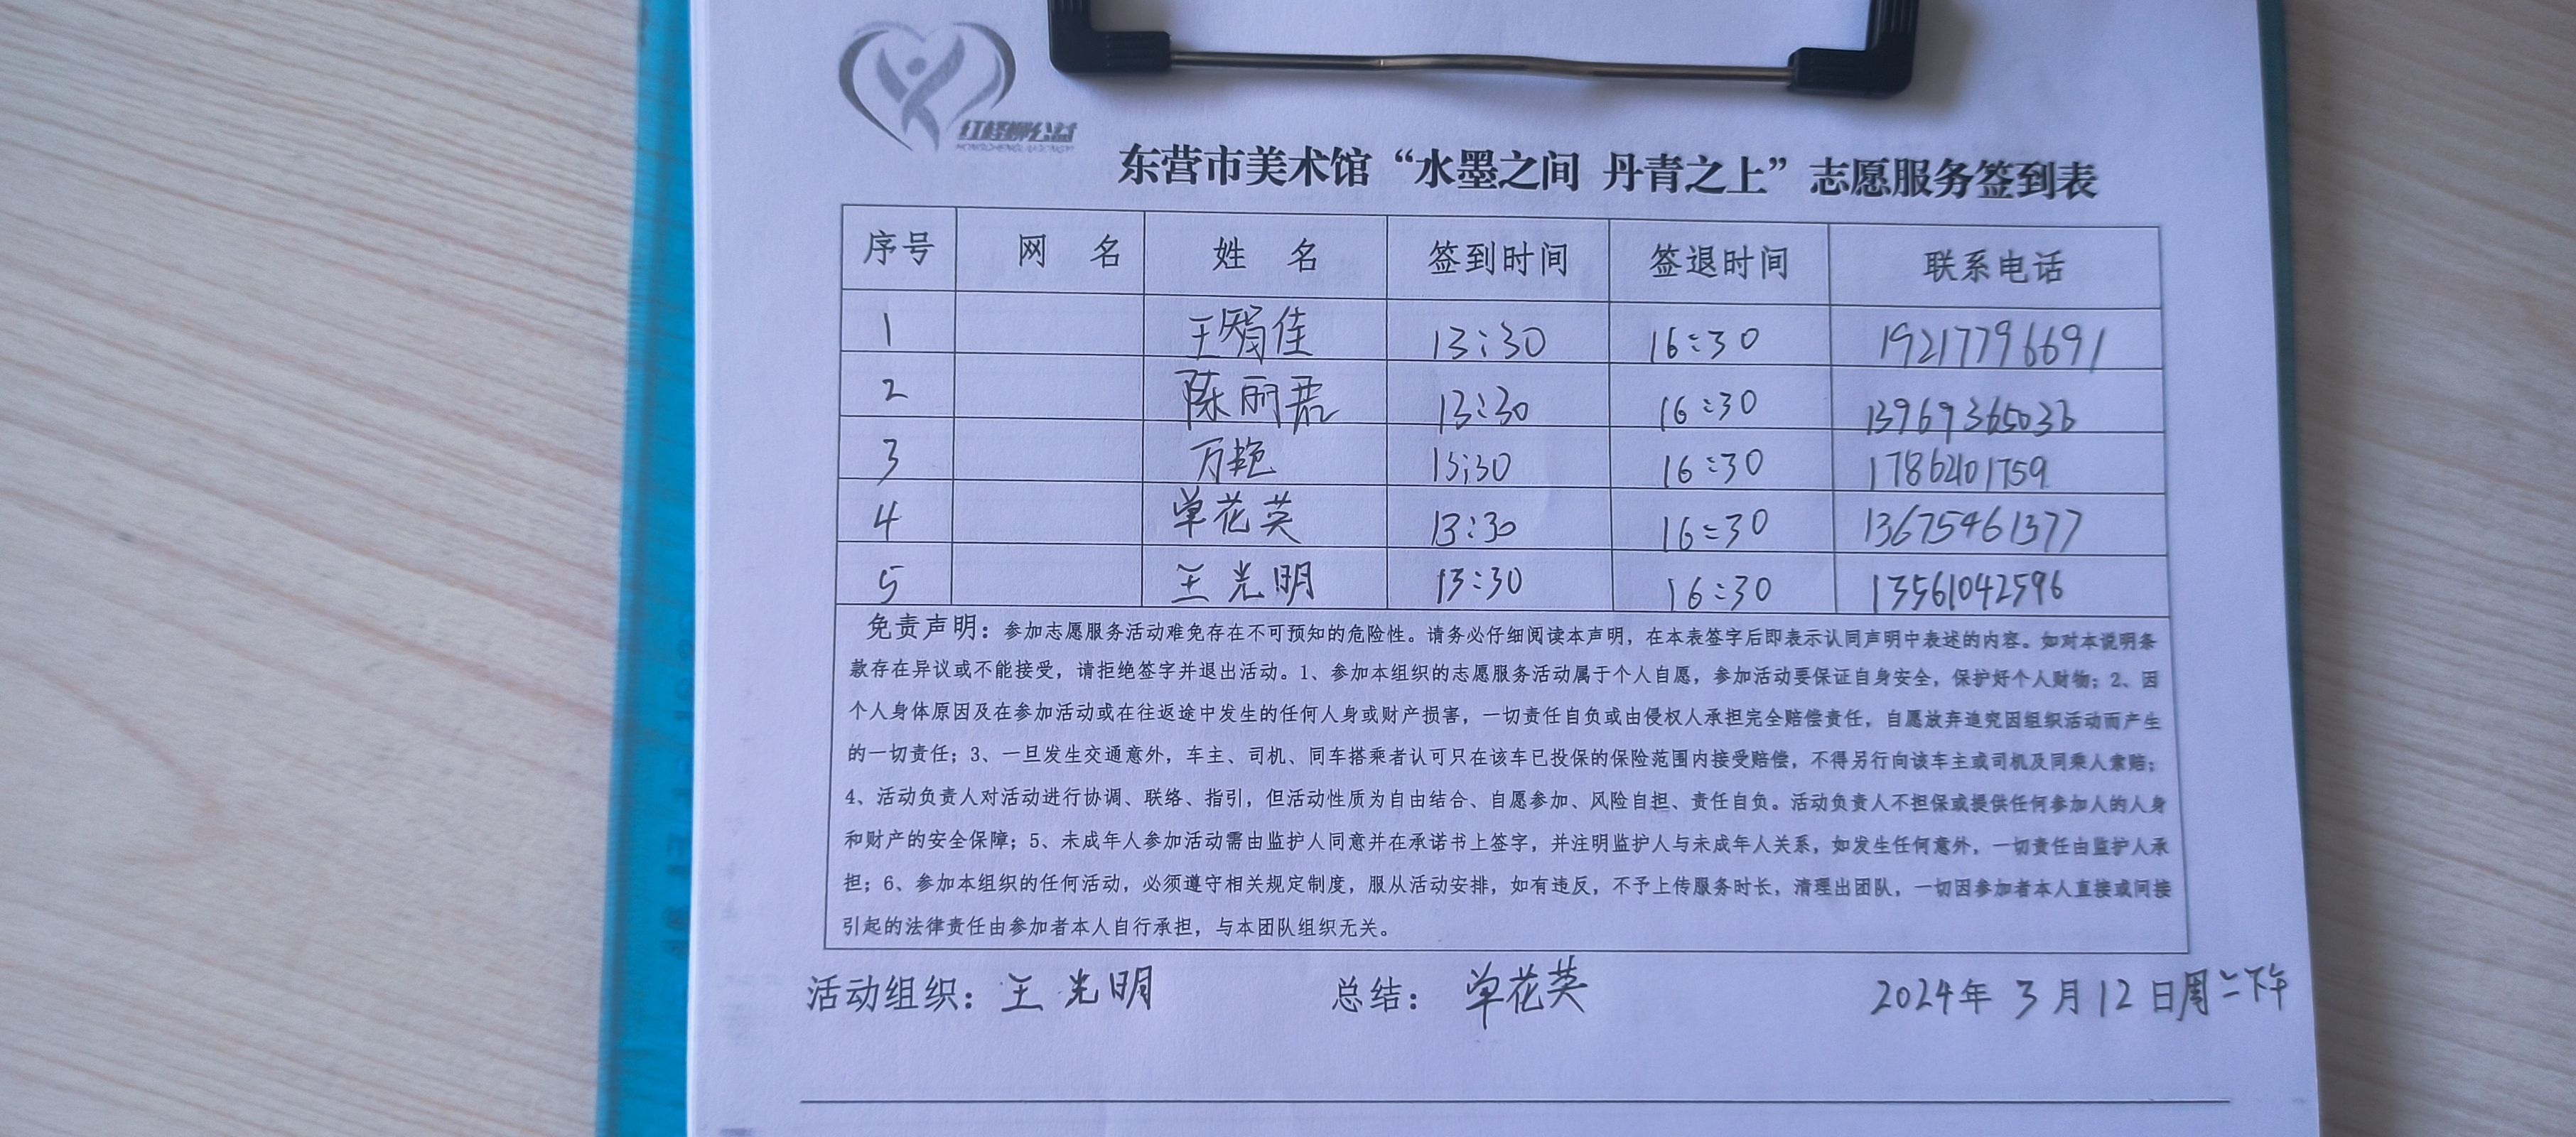 红柽柳公益
东营市美术馆“水墨之间 丹青之上”志愿服务签到表
序号 网 名 姓 名 签到时间 签退时间 联系电话
1 王 佳 13:30 16:30 19217796691
2 陈丽君 13:30 16:30 13969365036
3 万艳 13:30 16:30 17862401759
4 单花英 13:30 16:30 13675461377
5 王光明 13:30 16:30 13561042596
免责声明：参加志愿服务活动难免存在不可预知的危险性。请务必仔细阅读本声明，在本表签字后即表示认同声明中表述的内容。如对本说明条
款存在异议或不能接受，请拒绝签字并退出活动。1、参加本组织的志愿服务活动属于个人自愿，参加活动要保证自身安全，保护好个人财物；2、因
个人身体原因及在参加活动或在往返途中发生的任何人身或财产损害，一切责任自负或由侵权人承担完全赔偿责任，自愿放弃追究因组织活动而产生
的一切责任；3、一旦发生交通意外，车主、司机、同车搭乘者认可只在该车已投保的保险范围内接受赔偿，不得另行向该车主或司机及同乘人索赔；
4、活动负责人对活动进行协调、联络、指引，但活动性质为自由结合、自愿参加、风险自担、责任自负。活动负责人不担保或提供任何参加人的人身
和财产的安全保障；5、未成年人参加活动需由监护人同意并在承诺书上签字，并注明监护人与未成年人关系，如发生任何意外，一切责任由监护人承
担；6、参加本组织的任何活动，必须遵守相关规定制度，服从活动安排，如有违反，不予上传服务时长，清理出团队，一切因参加者本人直接或间接
引起的法律责任由参加者本人自行承担，与本团队组织无关。
活动组织：王光明 总结：单花英 2024年 3 月 12 日周二下午